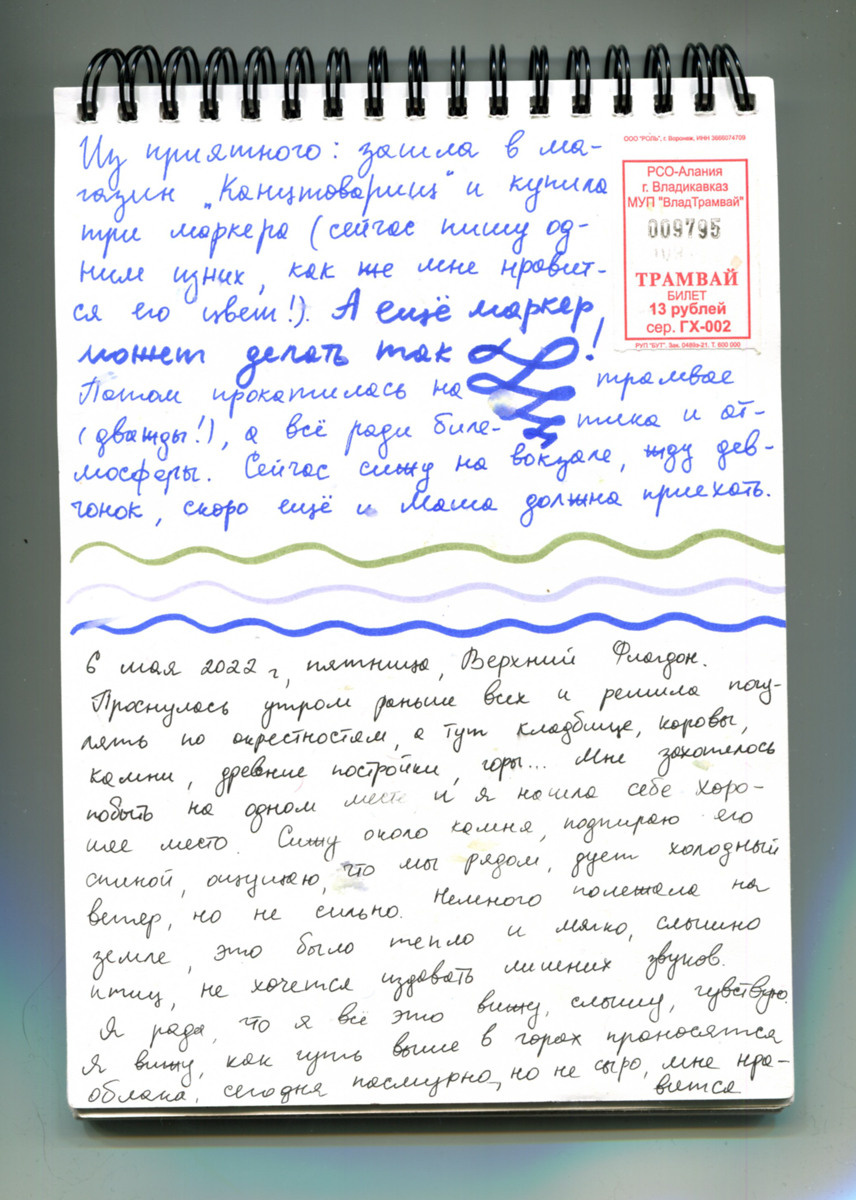 Из приятного: зашла в ма-
газин „Канцтоварищ“ и купила
три маркера (сейчас пишу од-
ним из них, как же мне нравит-
ся его цвет!). А ещё маркер
может делать так !
Потом прокатилась на трамвае
(дважды!), а всё ради биле- тика и ат-
мосферы. Сейчас сижу на вокзале, жду дев-
чонок, скоро ещё и Маша должна приехать.
ООО "РОЛЬ", г. Воронеж, ИНН 3666074709
РСО-Алания
г. Владикавказ
МУП "ВладТрамвай"
009795
ТРАМВАЙ
БИЛЕТ
13 рублей
сер. ГХ-002
РУП "БУТ". Зак. 0485в-21. Т. 600 000
6 мая 2022 г, пятница, Верхний Фиагдон.
Проснулась утром раньше всех и решила погу-
лять по окрестностям, а тут кладбище, коровы,
камни, древние постройки, горы... Мне захотелось
побыть на одном месте и я нашла себе хоро-
шее место. Сижу около камня, подпираю его
спиной, ощущаю, что мы рядом, дует холодный
ветер, но не сильно. Немного полежала на
земле, это было тепло и мягко, слышно
птиц, не хочется издавать лишних звуков.
Я рада, что я всё это вижу, слышу, чувствую.
Я вижу, как чуть выше в горах проносятся
облака, сегодня пасмурно, но не сыро, мне нра-
вится